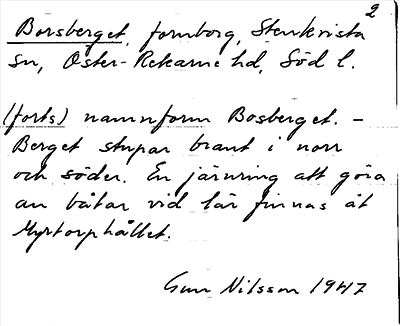 2
Borsberget, fornborg, Stenkvista
sn, Öster-Rekarne hd, Söd l.
(forts) namnform Bosberget. -
Berget stupar brant i norr
och söder. En järnring att göra
an båtar vid lär finnas åt
Myrtorphållet.
Gun Nilsson 1947